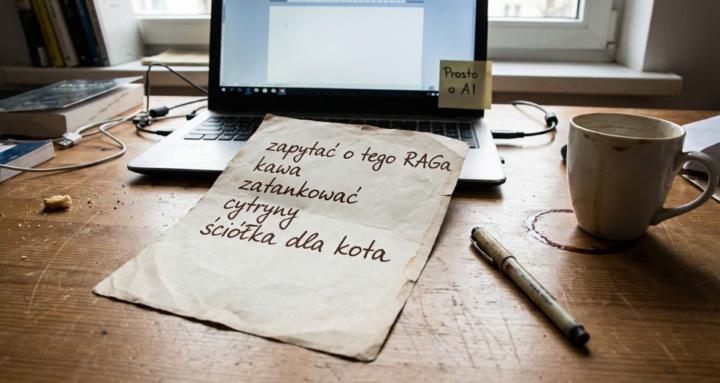 Prosto
o AI
zapytać o tego RAGa
kawa
zatankować
cytryny
ściółka dla kota